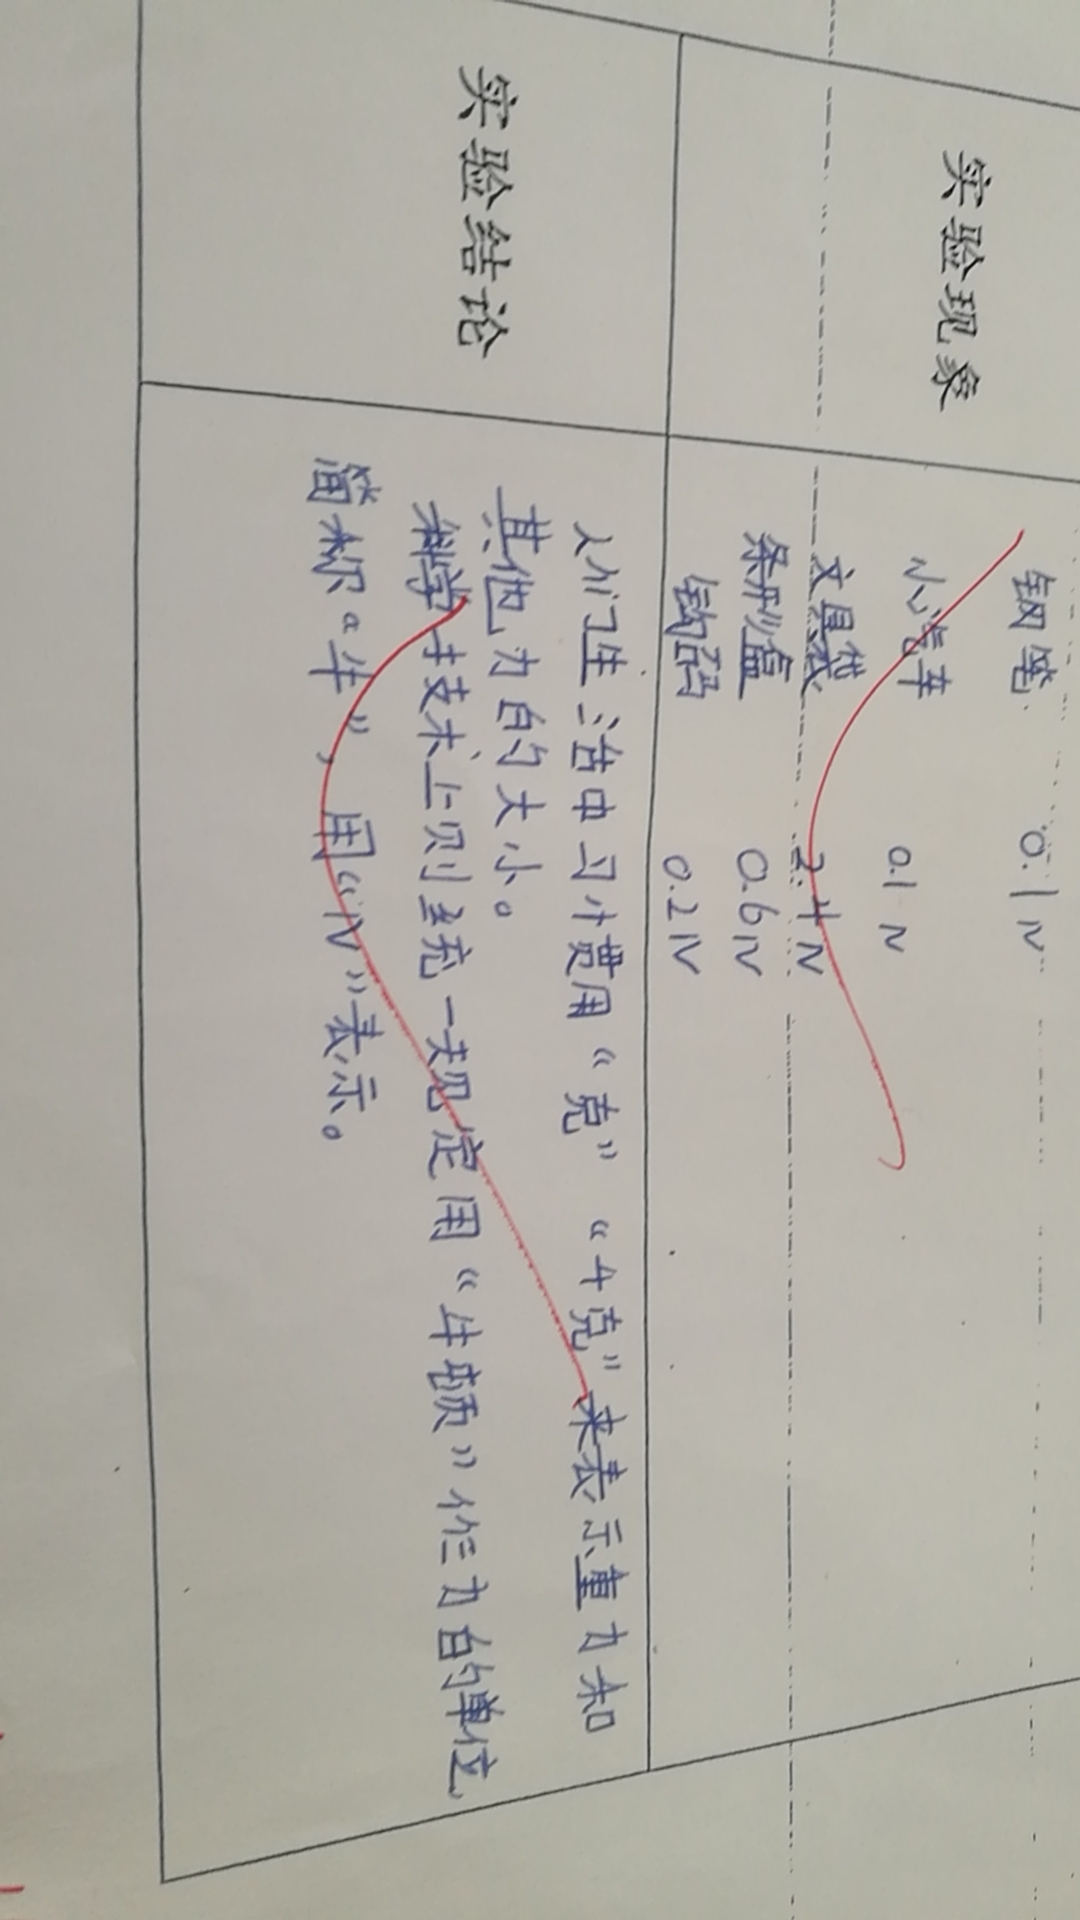 实验现象
钢笔 0.1N
小汽车 0.1N
文具袋 2.4N
条形盒 0.6N
钩码 0.2N
实验结论
人们生活中习惯用“克”“千克”来表示重力和
其他力的大小。
科学技术上则统一规定用“牛顿”作力的单位
简称“牛”，用“N”表示。